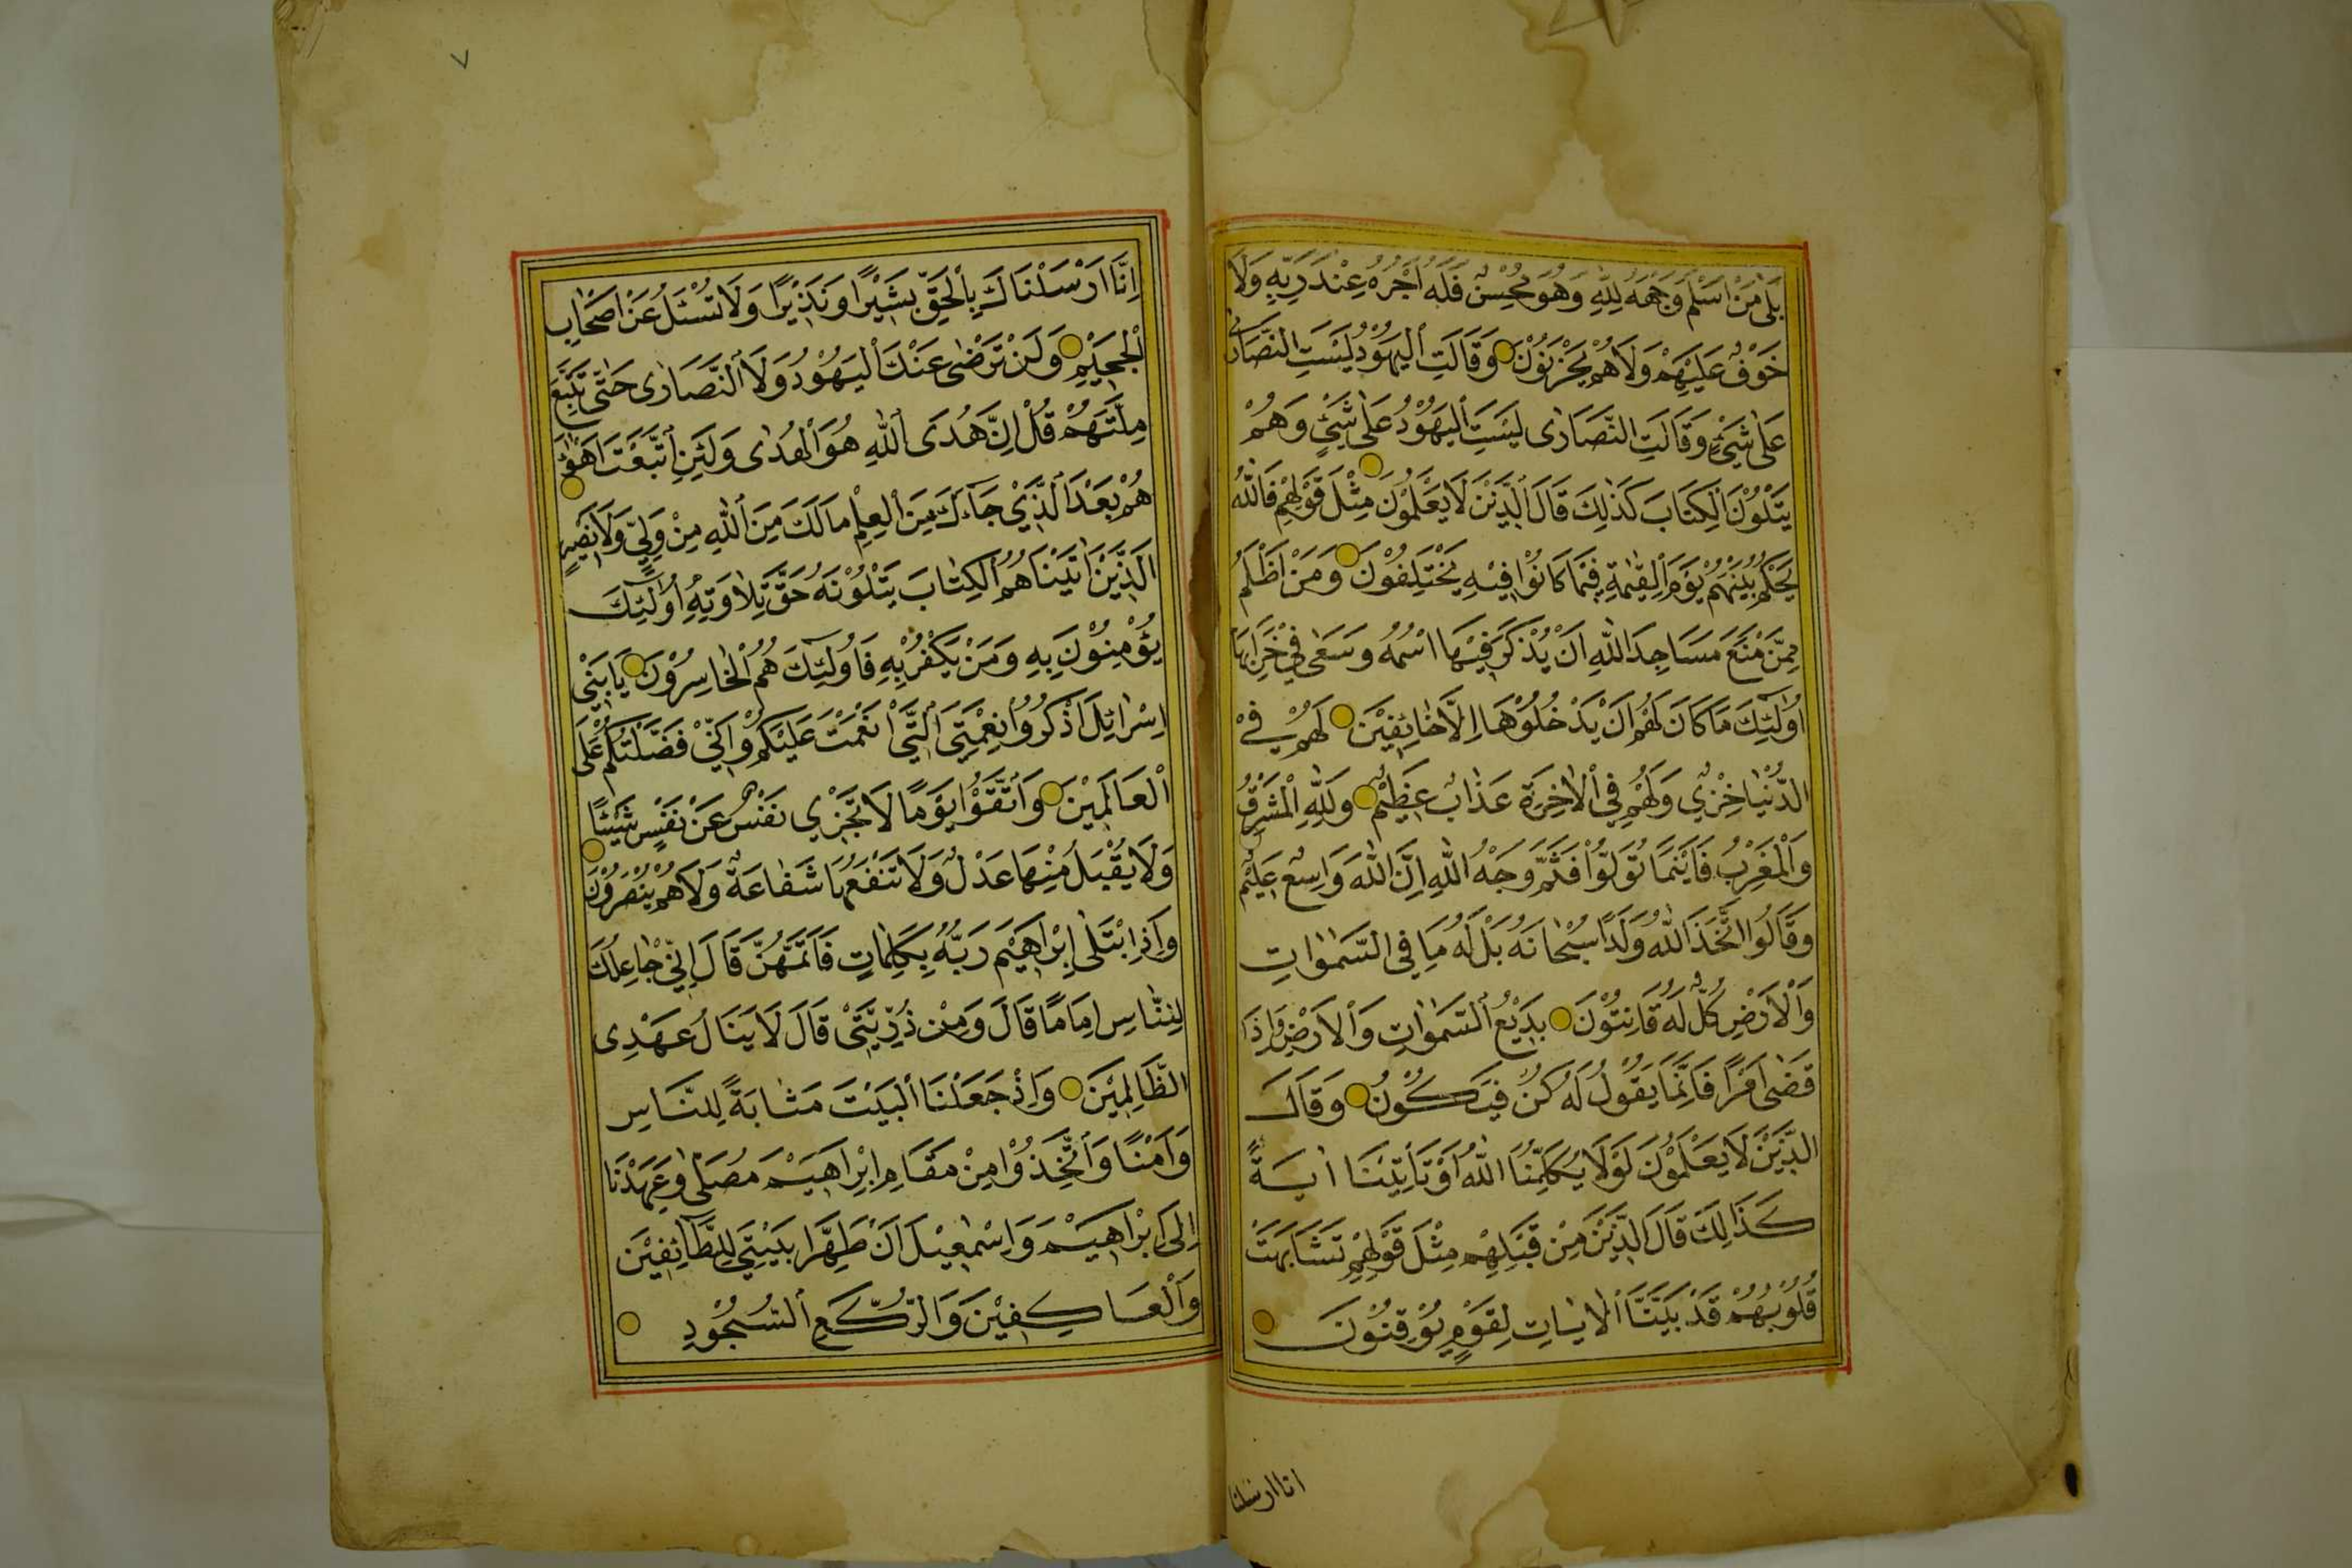 بَلٰى مَنْ اَسْلَمَ وَجْهَهُ لِلّٰهِ وَهُوَ مُحْسِنٌ فَلَهُ اَجْرُهُ عِنْدَ رَبِّهِ وَلَا
خَوْفٌ عَلَيْهِمْ وَلَا هُمْ يَحْزَنُوْنَ وَقَالَتِ الْيَهُوْدُ لَيْسَتِ النَّصَارٰى
عَلٰى شَيْءٍ وَقَالَتِ النَّصَارٰى لَيْسَتِ الْيَهُوْدُ عَلٰى شَيْءٍ وَهُمْ
يَتْلُوْنَ الْكِتَابَ كَذٰلِكَ قَالَ الَّذِيْنَ لَا يَعْلَمُوْنَ مِثْلَ قَوْلِهِمْ فَاللّٰهُ
يَحْكُمُ بَيْنَهُمْ يَوْمَ الْقِيٰمَةِ فِيْمَا كَانُوْا فِيْهِ يَخْتَلِفُوْنَ وَمَنْ اَظْلَمُ
مِمَّنْ مَنَعَ مَسَاجِدَ اللّٰهِ اَنْ يُذْكَرَ فِيْهَا اسْمُهُ وَسَعٰى فِيْ خَرَابِهَا
اُولٰئِكَ مَا كَانَ لَهُمْ اَنْ يَدْخُلُوْهَا اِلَّا خَائِفِيْنَ لَهُمْ فِيْ
الدُّنْيَا خِزْيٌ وَلَهُمْ فِي الْاٰخِرَةِ عَذَابٌ عَظِيْمٌ وَلِلّٰهِ الْمَشْرِقُ
وَالْمَغْرِبُ فَاَيْنَمَا تُوَلُّوْا فَثَمَّ وَجْهُ اللّٰهِ اِنَّ اللّٰهَ وَاسِعٌ عَلِيْمٌ
وَقَالُوا اتَّخَذَ اللّٰهُ وَلَدًا سُبْحَانَهُ بَلْ لَهُ مَا فِي السَّمٰوَاتِ
وَالْاَرْضِ كُلٌّ لَهُ قَانِتُوْنَ بَدِيْعُ السَّمٰوَاتِ وَالْاَرْضِ وَاِذَا
قَضٰى اَمْرًا فَاِنَّمَا يَقُوْلُ لَهُ كُنْ فَيَكُوْنُ وَقَالَ
الَّذِيْنَ لَا يَعْلَمُوْنَ لَوْلَا يُكَلِّمُنَا اللّٰهُ اَوْ تَأْتِيْنَا اٰيَةٌ
كَذَالِكَ قَالَ الَّذِيْنَ مِنْ قَبْلِهِمْ مِثْلَ قَوْلِهِمْ تَشَابَهَتْ
قُلُوْبُهُمْ قَدْ بَيَّنَّا الْاٰيَاتِ لِقَوْمٍ يُوْقِنُوْنَ
انا ارسلنا
٧
اِنَّا اَرْسَلْنَاكَ بِالْحَقِّ بَشِيْرًا وَنَذِيْرًا وَلَا تُسْئَلُ عَنْ اَصْحَابِ
الْجَحِيْمِ وَلَنْ تَرْضٰى عَنْكَ الْيَهُوْدُ وَلَا النَّصَارٰى حَتّٰى تَتَّبِعَ
مِلَّتَهُمْ قُلْ اِنَّ هُدَى اللّٰهِ هُوَ الْهُدٰى وَلَئِنِ اتَّبَعْتَ اَهْوَاءَ
هُمْ بَعْدَ الَّذِيْ جَاءَكَ مِنَ الْعِلْمِ مَا لَكَ مِنَ اللّٰهِ مِنْ وَلِيٍّ وَلَا نَصِيْرٍ
الَّذِيْنَ اٰتَيْنَاهُمُ الْكِتَابَ يَتْلُوْنَهُ حَقَّ تِلَاوَتِهِ اُولٰئِكَ
يُؤْمِنُوْنَ بِهِ وَمَنْ يَكْفُرْ بِهِ فَاُولٰئِكَ هُمُ الْخَاسِرُوْنَ يَا بَنِيْ
اِسْرَائِلَ اذْكُرُوْا نِعْمَتِيَ الَّتِيْ اَنْعَمْتُ عَلَيْكُمْ وَاَنِّيْ فَضَّلْتُكُمْ عَلَى
الْعَالَمِيْنَ وَاتَّقُوْا يَوْمًا لَا تَجْزِيْ نَفْسٌ عَنْ نَفْسٍ شَيْئًا
وَلَا يُقْبَلُ مِنْهَا عَدْلٌ وَلَا تَنْفَعُهَا شَفَاعَةٌ وَلَا هُمْ يُنْصَرُوْنَ
وَاِذِ ابْتَلٰى اِبْرَاهِيْمَ رَبُّهُ بِكَلِمَاتٍ فَاَتَمَّهُنَّ قَالَ اِنِّيْ جَاعِلُكَ
لِلنَّاسِ اِمَامًا قَالَ وَمِنْ ذُرِّيَّتِيْ قَالَ لَا يَنَالُ عَهْدِى
الظَّالِمِيْنَ وَاِذْ جَعَلْنَا الْبَيْتَ مَثَابَةً لِلنَّاسِ
وَاَمْنًا وَاتَّخِذُوْا مِنْ مَقَامِ اِبْرَاهِيْمَ مُصَلًّى وَعَهِدْنَا
اِلٰى اِبْرَاهِيْمَ وَاِسْمٰعِيْلَ اَنْ طَهِّرَا بَيْتِيَ لِلطَّائِفِيْنَ
وَالْعَاكِفِيْنَ وَالرُّكَّعِ السُّجُوْدِ